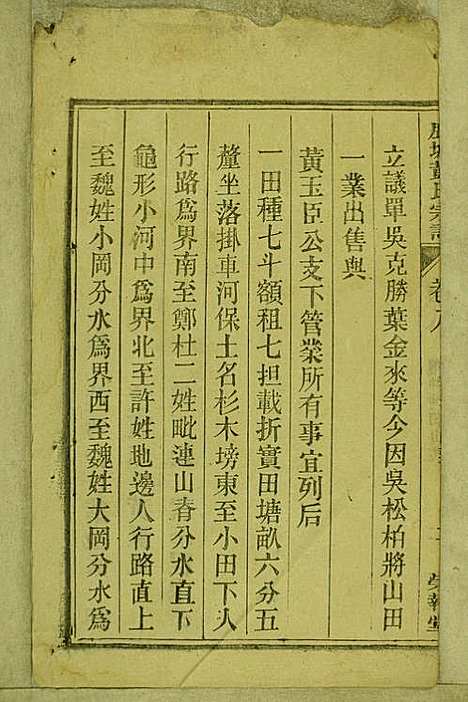 黃氏宗譜
卷八
立議單吳克勝葉金來等今因吳松柏將山田
一業出售與
黃玉臣公支下管業所有事宜列后
一田種七斗額租七担載折實田塘畝六分五
釐坐落掛車河保土名杉木塝東至小田下人
行路爲界南至鄭杜二姓毗連山脊分水直下
龜形小河中爲界北至許姓地邊人行路直上
至魏姓小岡分水爲界西至魏姓大岡分水爲